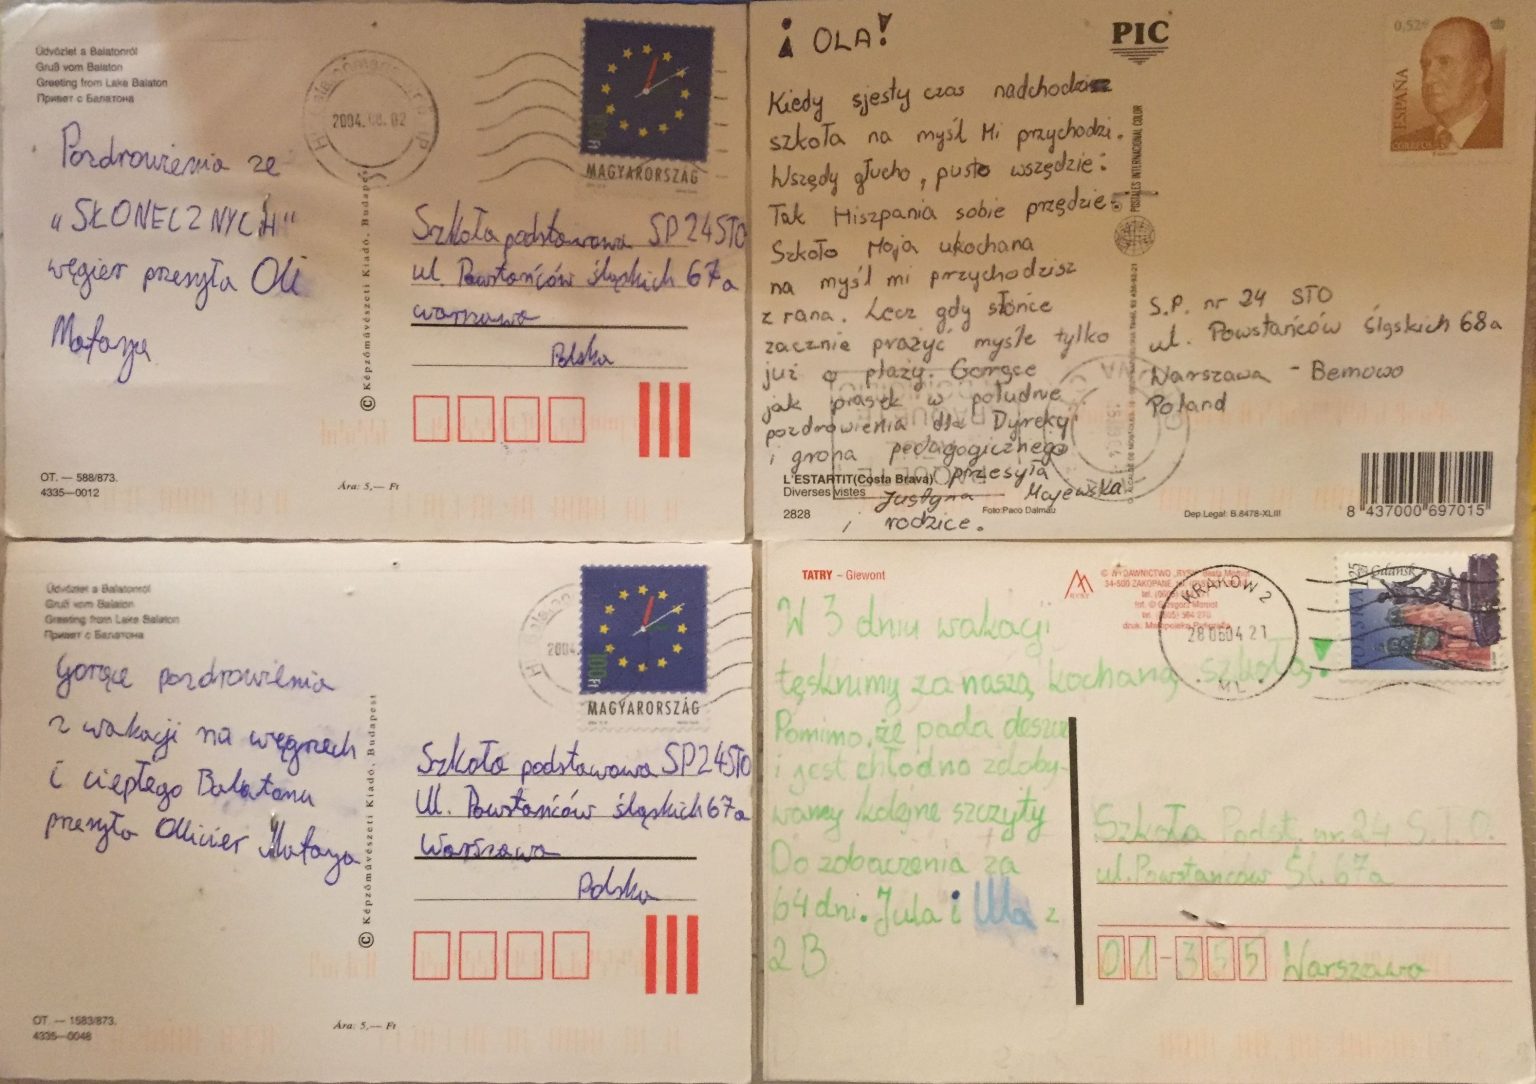 Üdvözlet a Balatonról
Gruß vom Balaton
Greeting from Lake Balaton
Привет с Балатона
Pozdrowienia ze
"SŁONECZNYCH"
węgier przesyła Oli
Mataya
2004.08.02
100Ft
MAGYARORSZÁG
Szkoła podstawowa SP 24STO
ul. Powstańców śląskich 67a
warszawa
Polska
© Képzőművészeti Kiadó, Budapest
OT. — 588/873.
4335—0012
Ára: 5,— Ft
¡ OLA!
PIC
0,52€
ESPAÑA
CORREOS
Kiedy sjesty czas nadchodzi
szkoła na myśl Mi przychodzi.
Wszędy głucho, pusto wszędzie:
Tak Hiszpania sobie przędzie.
Szkoło Moja ukochana
na myśl mi przychodzisz
z rana. Lecz gdy słońce
zacznie prażyć myślę tylko
już o plaży. Gorące
jak piasek w południe
pozdrowienia dla Dyrekcji
i grona pedagogicznego
przesyła
Justyna Majewska
i rodzice.
POSTALES INTERNATIONAL COLOR
S.P. nr 24 STO
ul. Powstańców śląskich 68a
Warszawa - Bemowo
Poland
L'ESTARTIT(Costa Brava)
Diverses vistes
2828
Foto:Paco Dalmau
Dep.Legal: B.8478-XLIII
8 437000 697015
Üdvözlet a Balatonról
Gruß vom Balaton
Greeting from Lake Balaton
Привет с Балатона
Gorące pozdrowienia
z wakacji na węgrzech
i ciepłego Balatonu
przesyła Ollivier Mataya
2004.
100Ft
MAGYARORSZÁG
Szkoła podstawowa SP24STO
Ul. Powstańców śląskich 67a
Warszawa
Polska
© Képzőművészeti Kiadó, Budapest
OT. — 1583/873.
4335—0048
Ára: 5,— Ft
TATRY – Giewont
34-500 ZAKOPANE
KRAKÓW 2
28 06 04 21
ML
Gdańsk
W 3 dniu wakacji
tęsknimy za naszą kochaną szkołą.
Pomimo, że pada deszcz
i jest chłodno zdoby-
wamy kolejne szczyty
Do zobaczenia za
64 dni. Jula i Ula z
2 B
Szkoła Podst. nr 24 S.T.O.
ul. Powstańców Śl. 67a
01-355 Warszawa